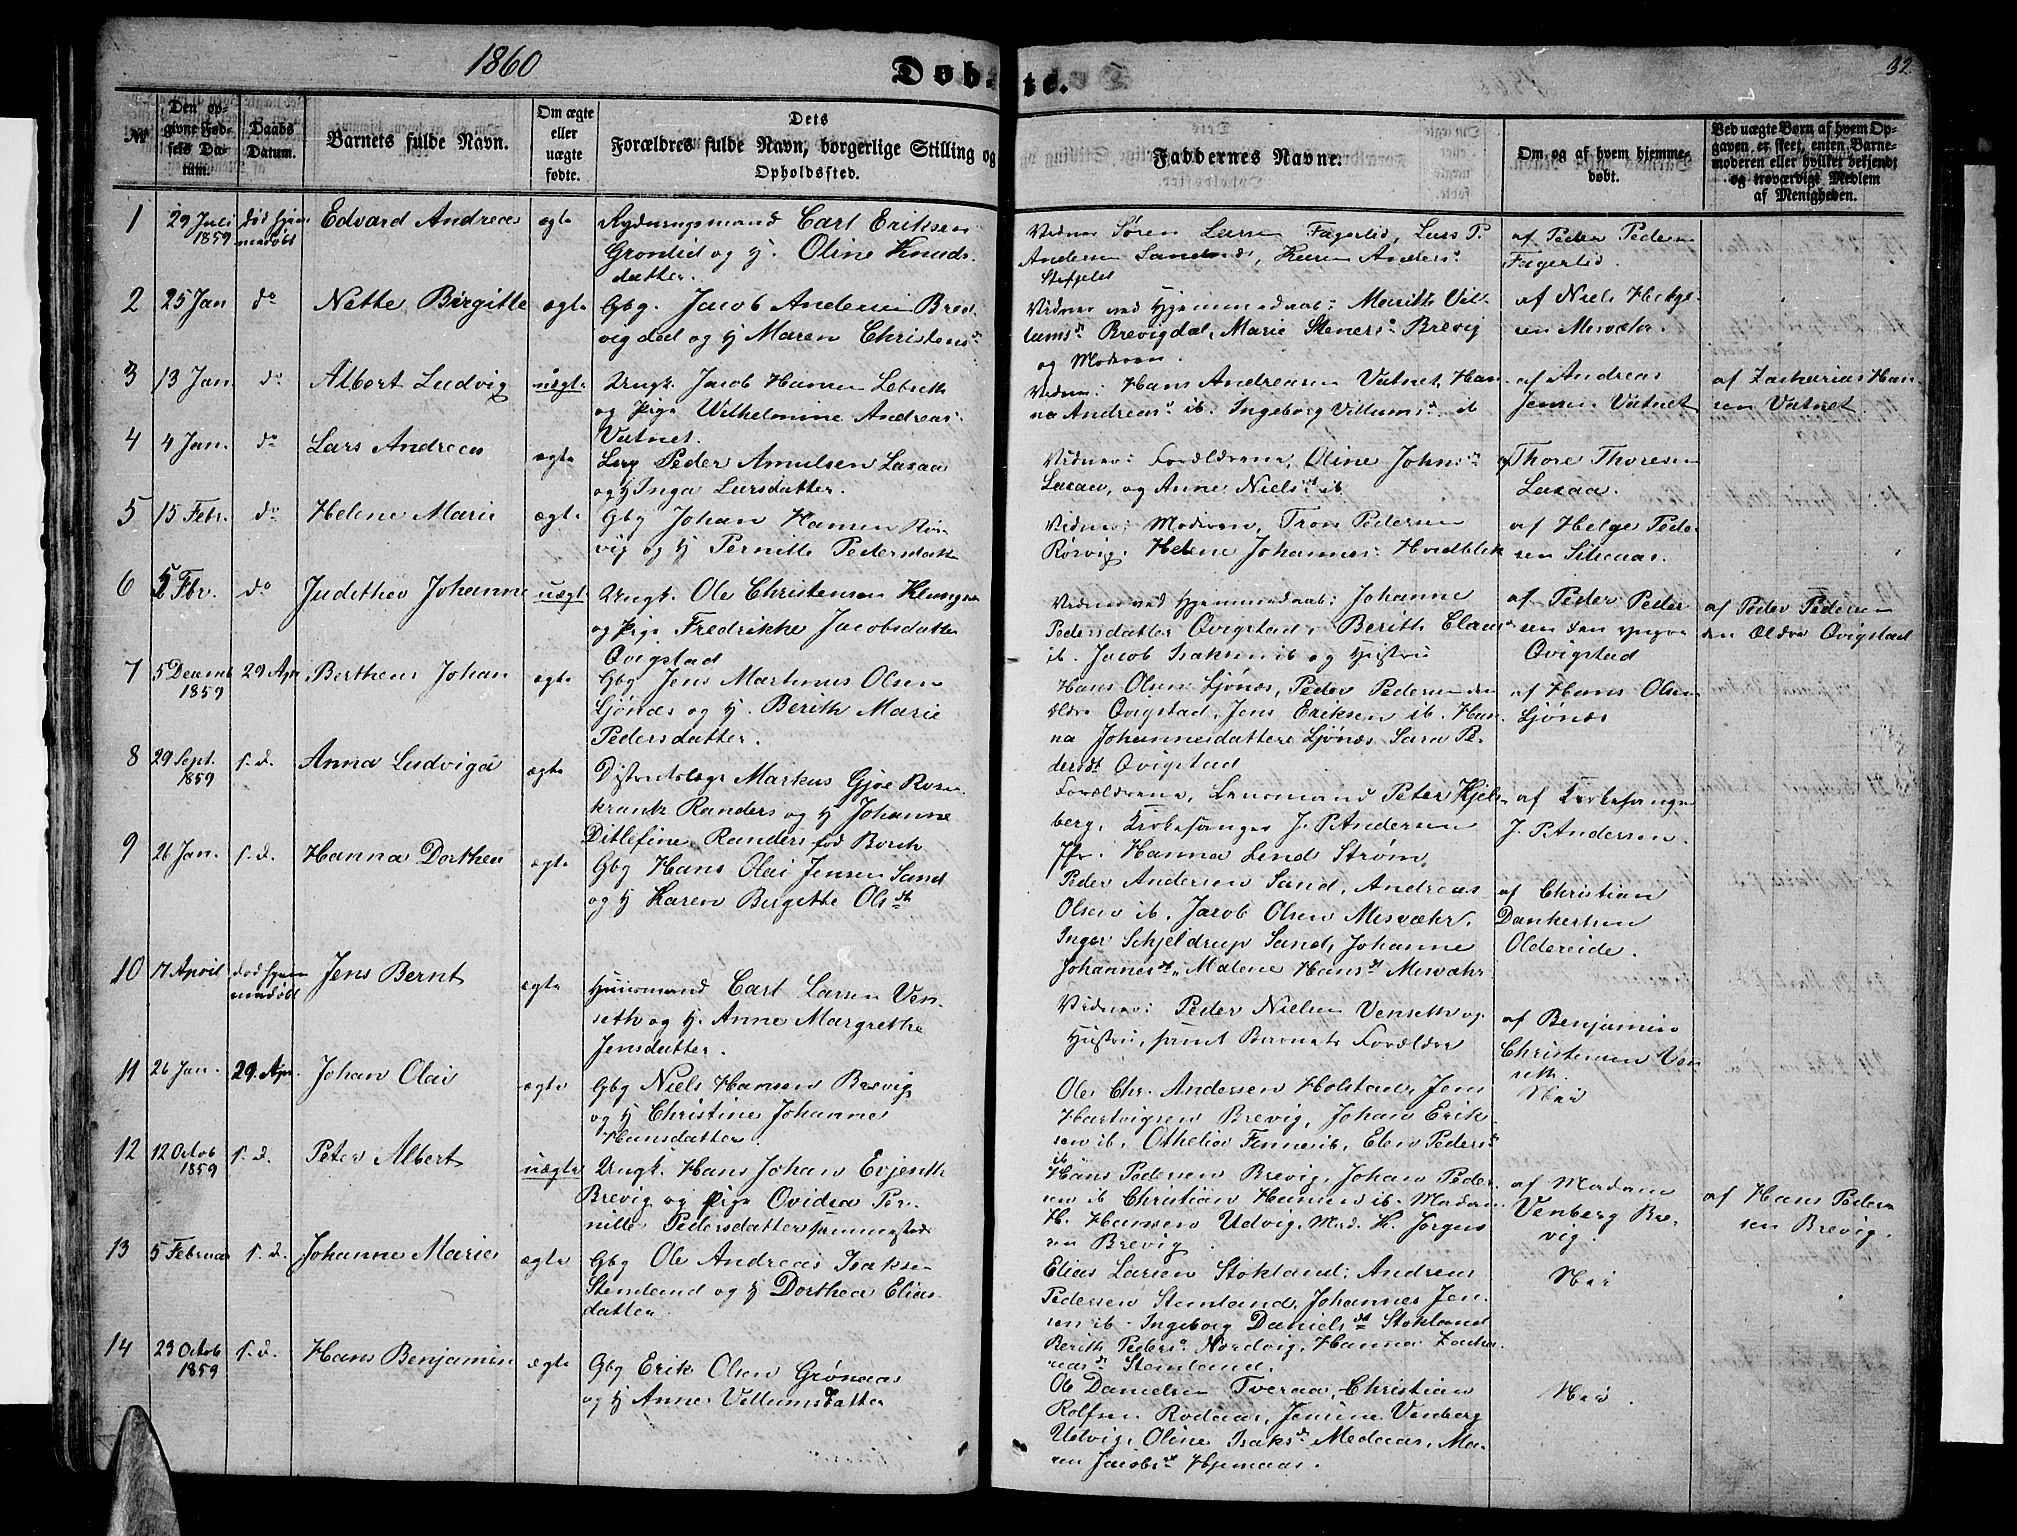 1860
Døbte.
32
No
Den opgivne Fødsels Datum.
Daabs Datum.
Barnets fulde Navn.
Om ægte eller uægte fødte.
Dets Forældres fulde Navn, borgerlige Stilling og Opholdssted.
Faddernes Navne.
Om og af hvem hjemmedøbt.
Ved uægte Børn af hvem Opgaven er skeet, enten Barnemoderen eller hvilket bekjendt og troværdigt Medlem af Menigheden.
1
29 Juli
1859
død hjem
medøbt
Edvard Andreas
ægte
Rydningsmand Carl Eriksen
Grønlid og H. Oline Knuds
datter.
Vidner Søren Larsen Fagerlid, Lars P.
Andersen, Karen Anders
af Peder Pedersen
Fagerlid.
2
25 Jan
do
Nette Birgitte
ægte
Gbg. Jacob Andersen Bre
vigdal og H Maren Christens
Vidner ved Hjemmedaab: Marith Vil
lums Brevigdal, Marie Steners Brevig
og Moderen.
af Niels Helge
sen Misvær.
3
13 Jan
do
Albert Ludvig
uægte
Ungk. Jacob Hansen
og Pige Wilhelmine Andreas
Vatnet.
Vidner: Hans Andreasen Vatnet, Han
na Andreas ib. Ingeborg Villums ib
af Andreas
Jensen Vatnet
af Zacharias Han
sen Vatnet.
4
4 Jan.
do
Lars Andreas
ægte
Peder Amulsen Laxaa
og H Inga Larsdatter.
Vidner: Forældrene, Oline Johns
Laxaa, og Anne Niels ib.
af Thore Thoresen
Laxaa.
5
15 Febr.
do
Helene Marie
ægte
Gbg Johan Hansen Rør
vig og H Pernille Pedersdatter
Vidner: Moderen, Tron Pedersen
Rørvig, Helene Johannes
af Helge Peder
sen
6
5 Fbr.
do
Judithe Johanne
uægt
Ungk. Ole Christensen
og Pige Fredrikke Jacobsdatter
Qvigstad
Vidner ved Hjemmedaab: Johanne
Pedersdatter Qvigstad, Berith Claus
ib. Jacob Isaksen ib og Hustru
af Peder Peder
sen den yngre
Qvigstad
af Peder Pedersen
den Ældre Qvigstad
7
5 Decemb
1859
29 Apr
Berthens Johan
ægte
Gbg Jens Martinus Olsen
Ljønæs og H. Berith Marie
Pedersdatter.
Hans Olsen Ljønæs, Peder Pedersen den
ældre Qvigstad, Jens Eriksen ib. Han
na Johannesdatter Ljønæs Sara Pe
dersdt Qvigstad
af Hans Olsen
Ljønæs
8
29 Sept.
1859
s. d.
Anna Ludviga
ægte
Districtslæge Markus Gjøe Rosen
krantz Randers og H Johanne
Ditlefine Randers fød Borch
Forældrene, Lensmand Peter Hjels
berg, Kirkesanger J. P. Andersen
Jfr. Hanna Lind Strøm.
af Kirkesanger
J. P. Andersen.
9
26 Jan.
s. d.
Hanna Dorthea
ægte
Gbg Hans Olai Jensen Sand
og H Karen Birgitte Olsdt
Peder Andersen Sand, Andreas
Olsen ib, Jacob Olsen Misvæhr.
Inger Schjeldrup Sand, Johanne
Johannesdt, Malene Hansdt Misvæhr
af Christian
Dankertsen
Oldereide.
10
17 April
død hjem
medøbt
Jens Bernt
ægte
Huusmand Carl Larsen Ven
seth og H. Anne Margrethe
Jensdatter.
Vidner: Peder Nielsen Venseth og
Hustru, samt Barnets Forældre
af Benjamin
Christensen Ven
seth.
11
26 Jan.
29. Apr.
Johan Olai
ægte
Gbg Niels Hansen Brevig
og H Christine Johanne
Hansdatter.
Ole Chr. Andersen Holstad, Jens
Hartvigsen Brevig, Johan Erik
sen ib, Othelie Finne ib, Elen Peders
ib
Nei
12
12 Octob
1859
s. d.
Peter Albert
uægte
Ungk. Hans Johan Evjenth
Brevig og Pige Ovidia Per
nille Pedersdatter sammesteds
Hans Pedersen Brevig, Johan Peder
sen ib Christian Hansen ib. Madam
H. Hansen Udvig, Mad. H. Jørgen
sen Brevig.
af Madam
Venberg Bre
vig.
af Hans Peder
sen Brevig.
13
5 Februar
s. d.
Johanne Marie
ægte
Gbg Ole Andreas Isaksen
Stemland og H Dorthea Elias
datter
Elias Larsen Stokland, Andreas
Pedersen Stemland, Johannes Jen
sen ib. Ingeborg Daniels Stokland
Berith Peders Nordvig, Hanna Zacha
rias Stemland.
Nei
14
23 Octob
1859
s. d.
Hans Benjamin
ægte
Gbg Erik Olsen Grønaas
og H Anne Villumsdatter
Ole Danielsen Tveraa, Christian
Rolfsen Rodaas, Jensine Venberg
Udvig, Oline Isaks Medaas, Ma
ren Jacobs Hjemaas.
Nei.